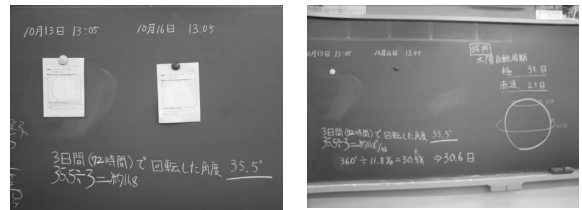 10月13日 13:05
10月16日 13:05
3日間(72時間)で回転した角度 35.5°
35.5÷3=約11.8
10月13日 13:05
10月16日 13:05
太陽自転周期
極 31日
赤道 27日
3日間(72時間)で回転した角度 35.5°
35.5÷3=約11.8
⇒30.6日